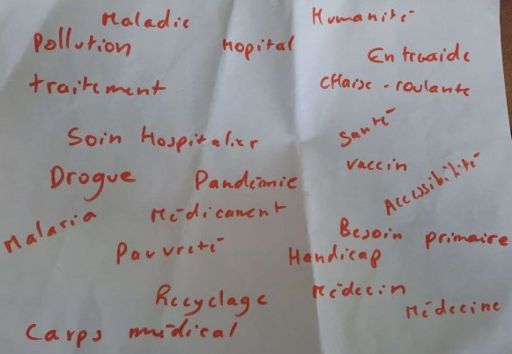 Maladie
Humanité
Pollution
Hopital
Entraide
traitement
CHaise-roulante
Santé
Soin Hospitalier
Vaccin
Drogue
Pandémie
Accessibilité
Malaria
Médicament
Pauvreté
Besoin primaire
Handicap
Recyclage
Médecin
Médecine
Corps médical